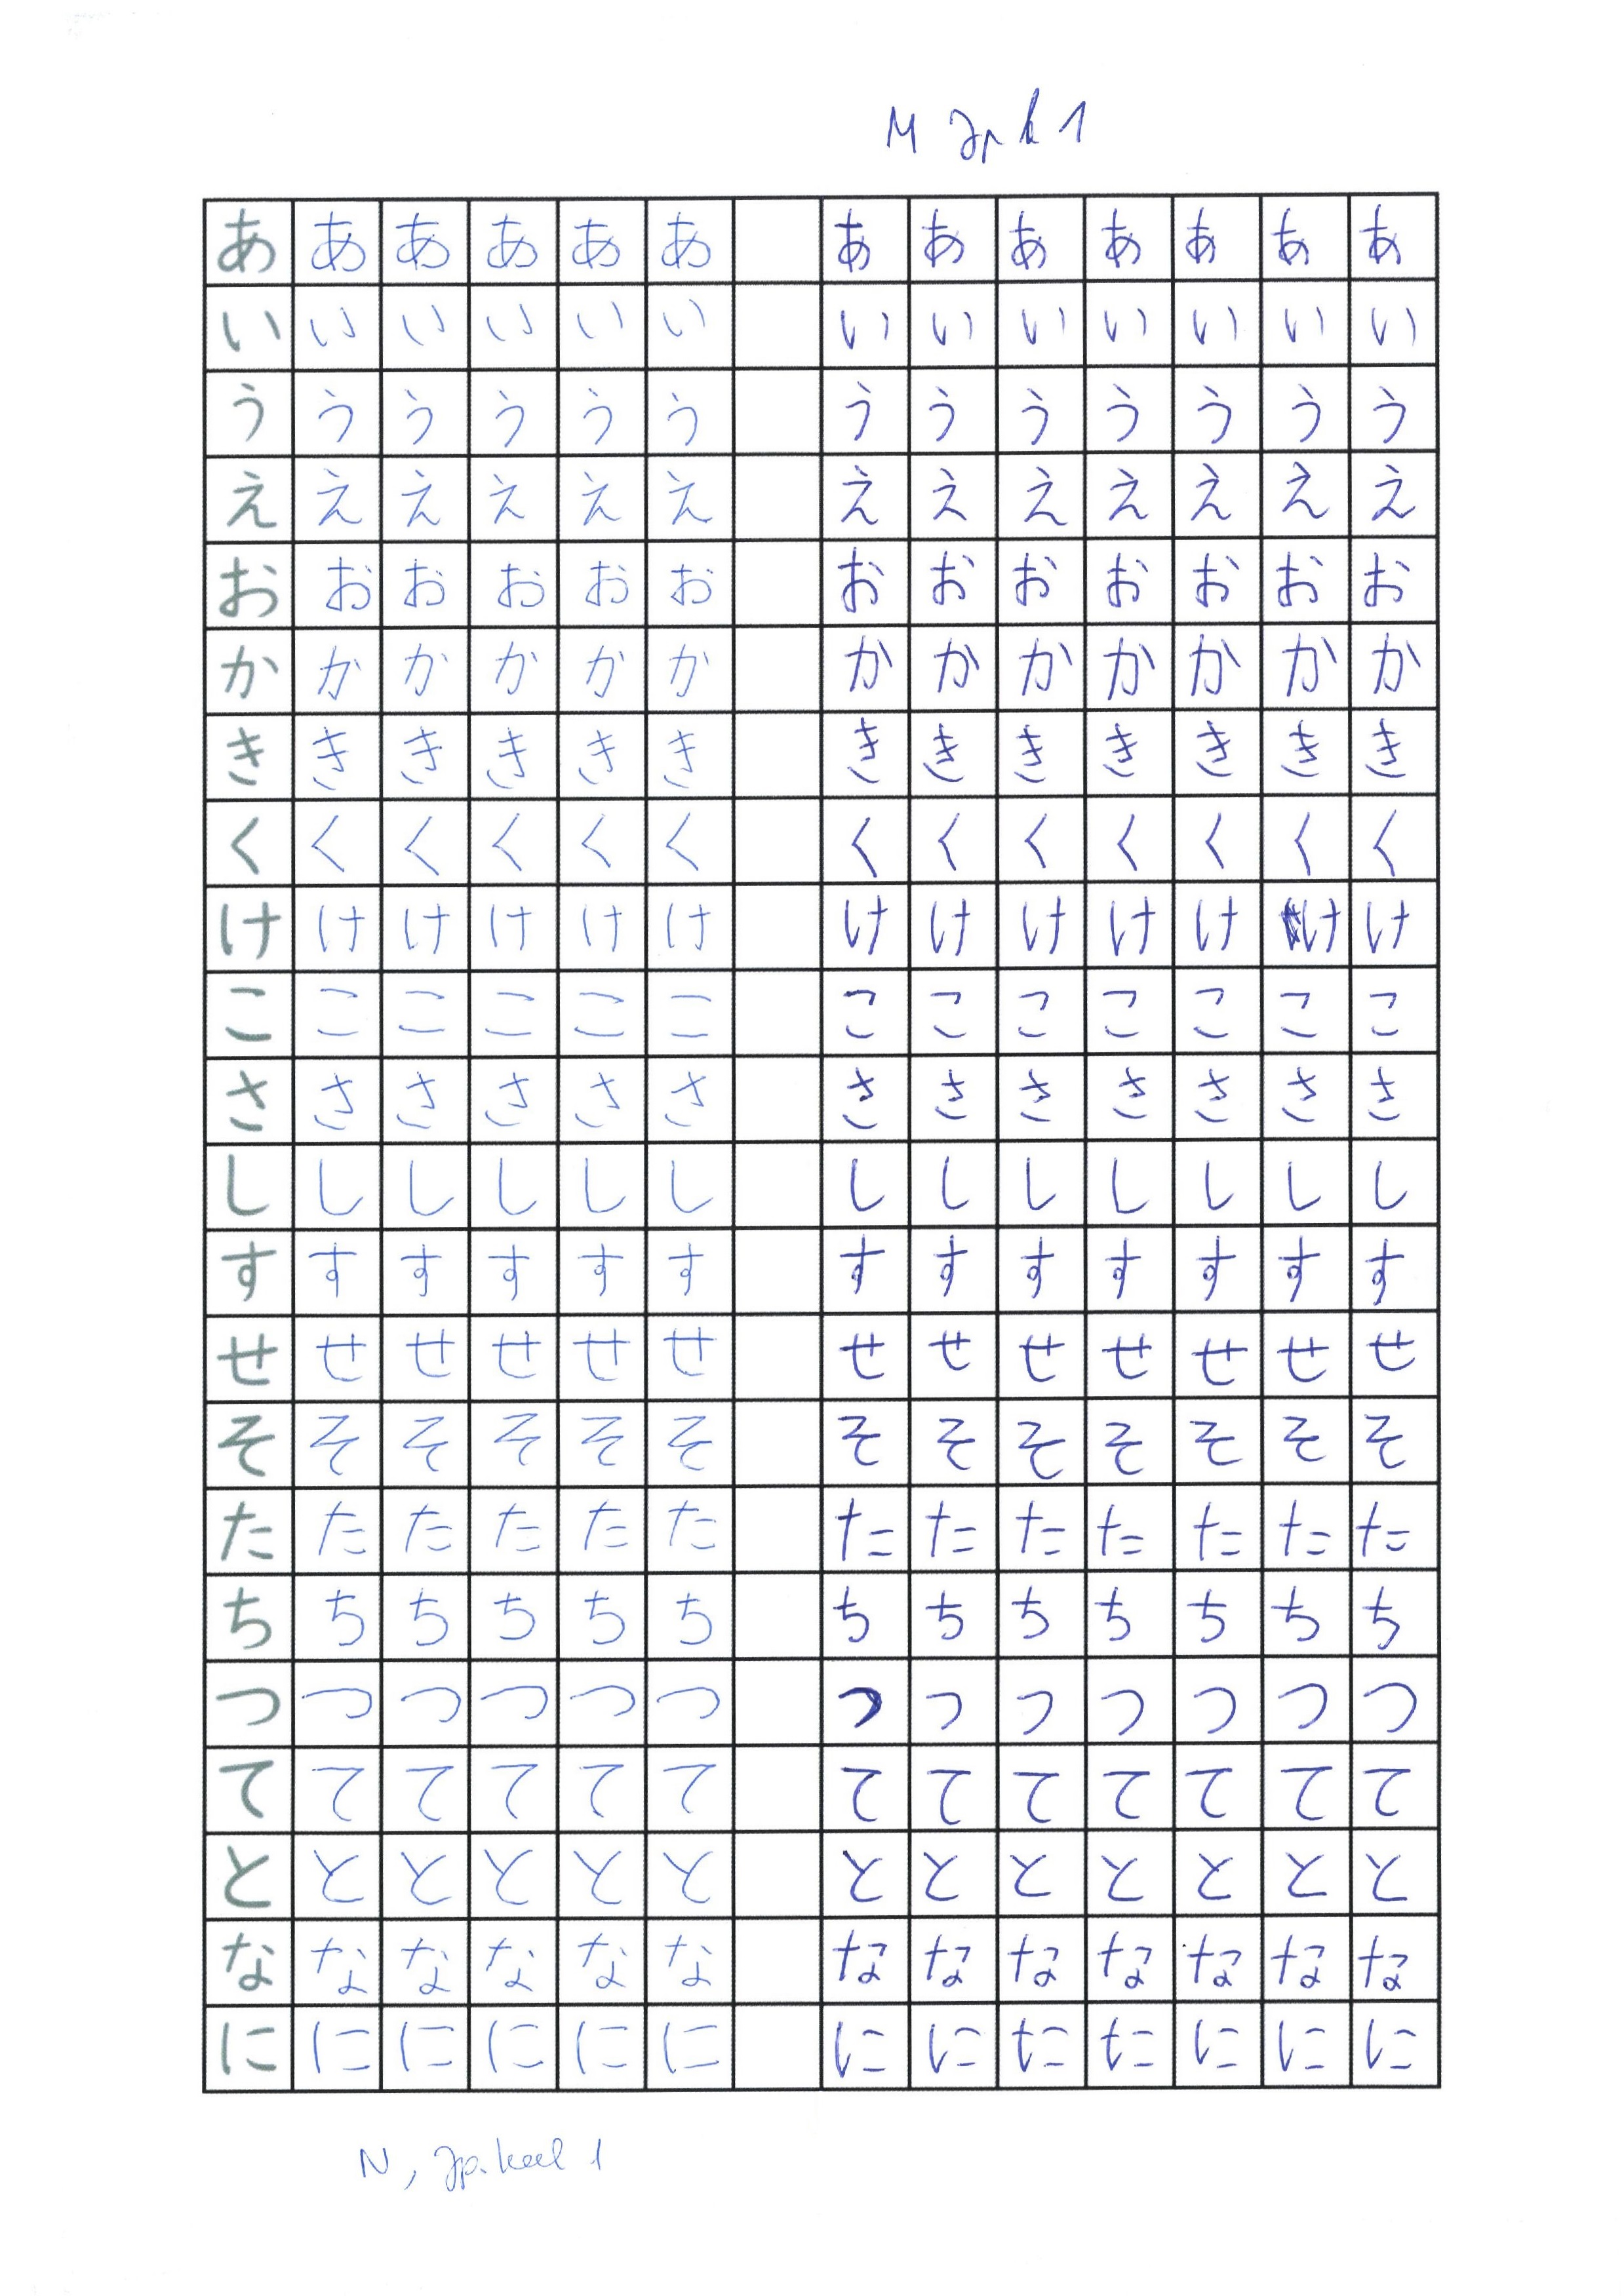 M Jp k 1
あ あ あ あ あ あ あ あ あ あ あ あ あ
い い い い い い い い い い い い い
う う う う う う う う う う う う う
え え え え え え え え え え え え え
お お お お お お お お お お お お お
か か か か か か か か か か か か か
き き き き き き き き き き き き き
く く く く く く く く く く く く く
け け け け け け け け け け け け け
こ こ こ こ こ こ こ こ こ こ こ こ こ
さ さ さ さ さ さ さ さ さ さ さ さ さ
し し し し し し し し し し し し し
す す す す す す す す す す す す す
せ せ せ せ せ せ せ せ せ せ せ せ せ
そ そ そ そ そ そ そ そ そ そ そ そ そ
た た た た た た た た た た た た た
ち ち ち ち ち ち ち ち ち ち ち ち ち
つ つ つ つ つ つ つ つ つ つ つ つ つ
て て て て て て て て て て て て て
と と と と と と と と と と と と と
な な な な な な な な な な な な な
に に に に に に に に に に に に に
N, Jp. keel 1